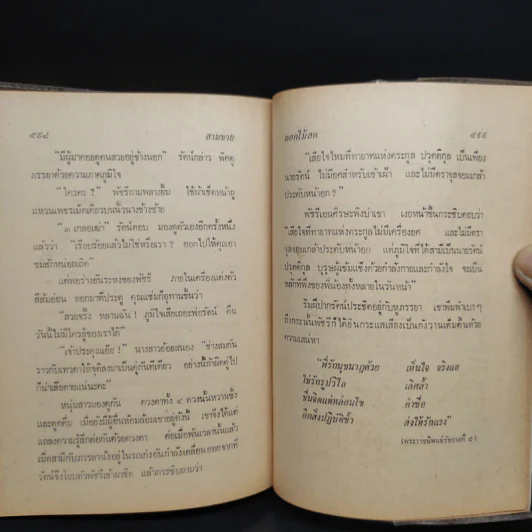 ๕๙๘ สามชาย
"มีผู้มาคอยดูคนสวยอยู่ข้างนอก" รัตน์กล่าว พิศดู
ภรรยาด้วยความภาคภูมิใจ
"ใครคะ ?" พัชรีถามพลางยิ้ม ใช้ผ้าเช็ดหน้าถู
แหวนเพชรเม็ดเดียวบนนิ้วนางข้างซ้าย
รัตน์ตอบ มองดูตัวเองอีกครั้งหนึ่ง
แล้วว่า "เรียบร้อยแล้วไม่ใช่หรือเรา ? ออกไปให้คุณเขา
ชมสักหน่อยเถิด"
แต่พอร่างอันระหงของพัชรี ภายในเครื่องแต่งตัว
สีส้มอ่อน ออกมาที่ประตู คุณแช่มก็อุทานขึ้นว่า
"สวยจริง หลานฉัน ! ภูมิใจเสียเถอะพ่อรัตน์ คืน
วันนี้ไม่มีใครสู้ของเราได้"
"เจ้าประคุณเอ๋ย !" นางสาวย้อยสนอง "ช่างสมกัน
ราวกับเทวดาให้จุติลงมาเป็นคู่กันทีเดียว อย่างนี้ถ้าผิดคู่ไป
ก็น่าเสียดายแน่นะคะ"
หนุ่มสาวมองดูกัน ดวงตาทั้ง ๔ ดวงนั้นหวานซึ้ง
และดูดดื่ม เมื่อยังมีผู้อื่นห้อมล้อมเขาอยู่ดังนี้ เขาจึงได้แต่
แถลงความรู้สึกต่อกันด้วยดวงตา ต่อเมื่อพ้นเวลานั้นแล้ว
เมื่อสามีกับภรรยานั่งอยู่ในรถเก๋งอันกำลังเคลื่อนออกจากที่
รัตน์จึงโอบตัวพัชรีเข้ามาชิด แล้วกระซิบถามว่า
ดอกไม้สด ๕๙๙
"เสียใจไหมที่ทายาทแห่งตระกูล ปวุตติกุล เป็นเพียง
นายรัตน์ ไม่มียศสำหรับเข้าเฝ้า และไม่มีตราจุลจอมเกล้า
ประดับหน้าอก ?"
พัชรีเอนศีรษะพิงบ่าเขา เงยหน้าขึ้นกระซิบตอบว่า
"เสียใจที่ทายาทแห่งตระกูลไม่มีเครื่องยศ และไม่มีตรา
จุลจอมเกล้าประดับหน้าอก แต่ภูมิใจที่ได้สามีเป็นนายรัตน์
ปวุตติกุล บุรุษผู้เข้มแข็งด้วยกำลังกายและกำลังใจ จะเป็น
หลักที่พึ่งของพี่น้องทั้งหลายในวันหน้า"
ริมฝีปากรัตน์ประชิดอยู่กับหูภรรยา เขาพึมพำเบา ๆ
ถึงกระนั้นพัชรีก็ได้ยินกระแสเสียงเป็นกังวานเต็มตื้นด้วย
ความเสน่หา
"พี่รักนุชนาฏด้วย เห็นใจ จริงแฮ
ใช่รักรูปวิไล เลิศล้ำ
อื่นจิตแต่หล่อนใข คำชื่อ
อีกสิ่งปฏิบัติซ้ำ ส่งให้รักแรง"
(พระราชนิพนธ์รัชกาลที่ ๕)